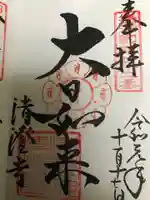 奉拝
令和元年
十月十七日
大日如来
清澄寺